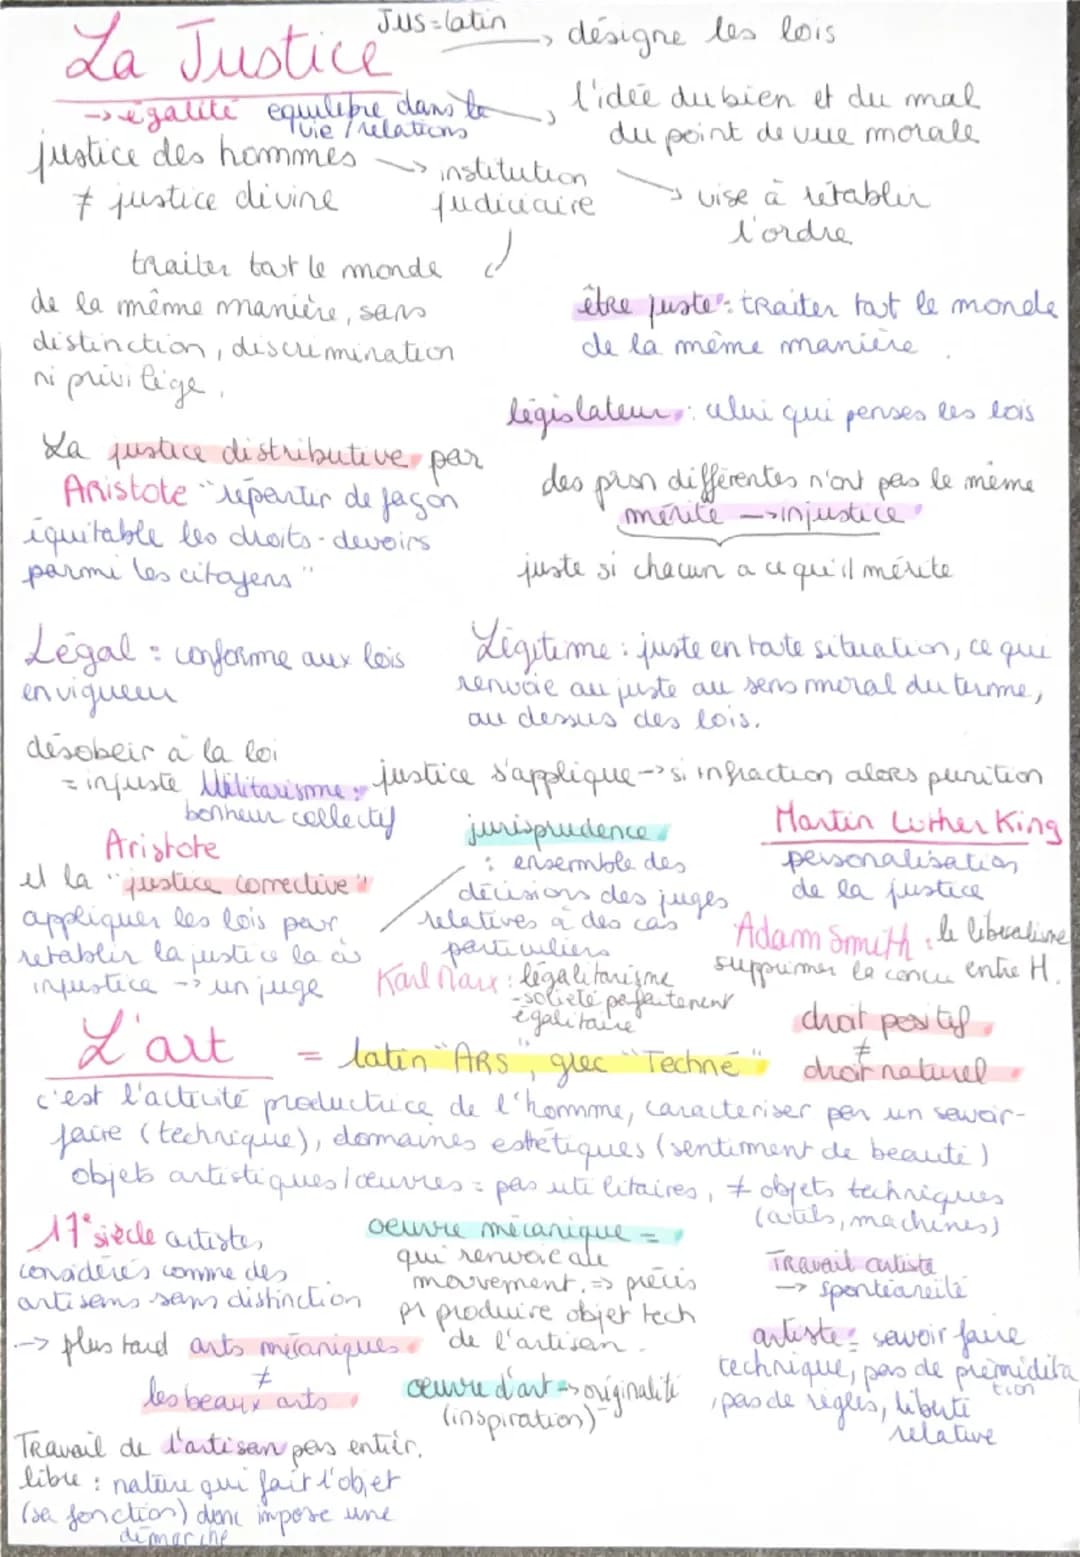 Jus = latin → désigne les lois
La Justice
→ égalité equilibre dans la vie / relations
→ l'idée du bien et du mal
du point de vue morale
justice des hommes
≠ justice divine
→ institution
judiciaire
→ vise à rétablir
l'ordre
traiter tout le monde
de la même manière, sans
distinction, discrimination
ni privilège.
être juste : traiter tout le monde
de la même manière.
législateur : celui qui penses les lois
La justice distributive par
Aristote "répartir de façon
équitable les droits - devoirs
parmi les citoyens"
des prsn différentes n'ont pas le même
mérite → injustice
juste si chacun a ce qu'il mérite
Légal : conforme aux lois
en vigueur
Légitime : juste en toute situation, ce qui
renvoie au juste au sens moral du terme,
au dessus des lois.
désobeir à la loi
= injuste
Utilitarisme :
bonheur collectif
justice s'applique → si infraction alors punition
Aristote
et la "justice corrective"
appliquer les lois pour
rétablir la justice là où
injustice → un juge
jurisprudence
: ensemble des
décisions des juges
relatives à des cas
particuliers
Martin Luther King
personalisation
de la justice
Adam Smith : le liberalisme
supprimer la concu entre H.
Karl Marx : l'égalitarisme
- société parfaitement
égalitaire
droit positif
≠
droit naturel
L'art = latin "ARS", grec "Techné"
c'est l'activité productrice de l'homme, caracteriser par un savoir-
faire (technique), domaines esthétiques (sentiment de beauté)
objets artistiques / œuvres = pas utilitaires, ≠ objets techniques
(outils, machines)
17e siècle artistes
considérés comme des
artisans sans distinction
→ plus tard arts mécaniques
≠
les beaux arts
oeuvre mécanique =
qui renvoie au
mouvement. => précis
pr produire objet tech
de l'artisan.
oeuvre d'art => originalité
(inspiration)
Travail artiste
→ spontanéité
artiste = savoir faire
technique, pas de prémidita
tion
, pas de règles, liberté
relative
Travail de l'artisan pas entièr.
libre : nature qui fait l'objet
(sa fonction) donc impose une
démarche